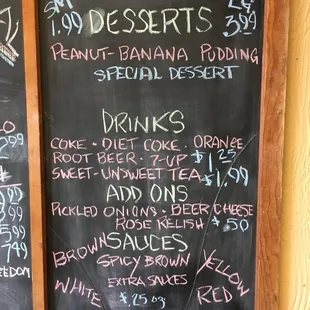 SM DESSERTS LG
1.99 3.99
PEANUT-BANANA PUDDING
SPECIAL DESSERT
DRINKS
COKE · DIET COKE · ORANGE
ROOT BEER · 7-UP $1.25
SWEET-UNSWEET TEA $1.99
ADD ONS
PICKLED ONIONS · BEER CHEESE
ROSE RELISH $.50
SAUCES
BROWN SPICY BROWN YELLOW
EXTRA SAUCES
WHITE $.25 RED